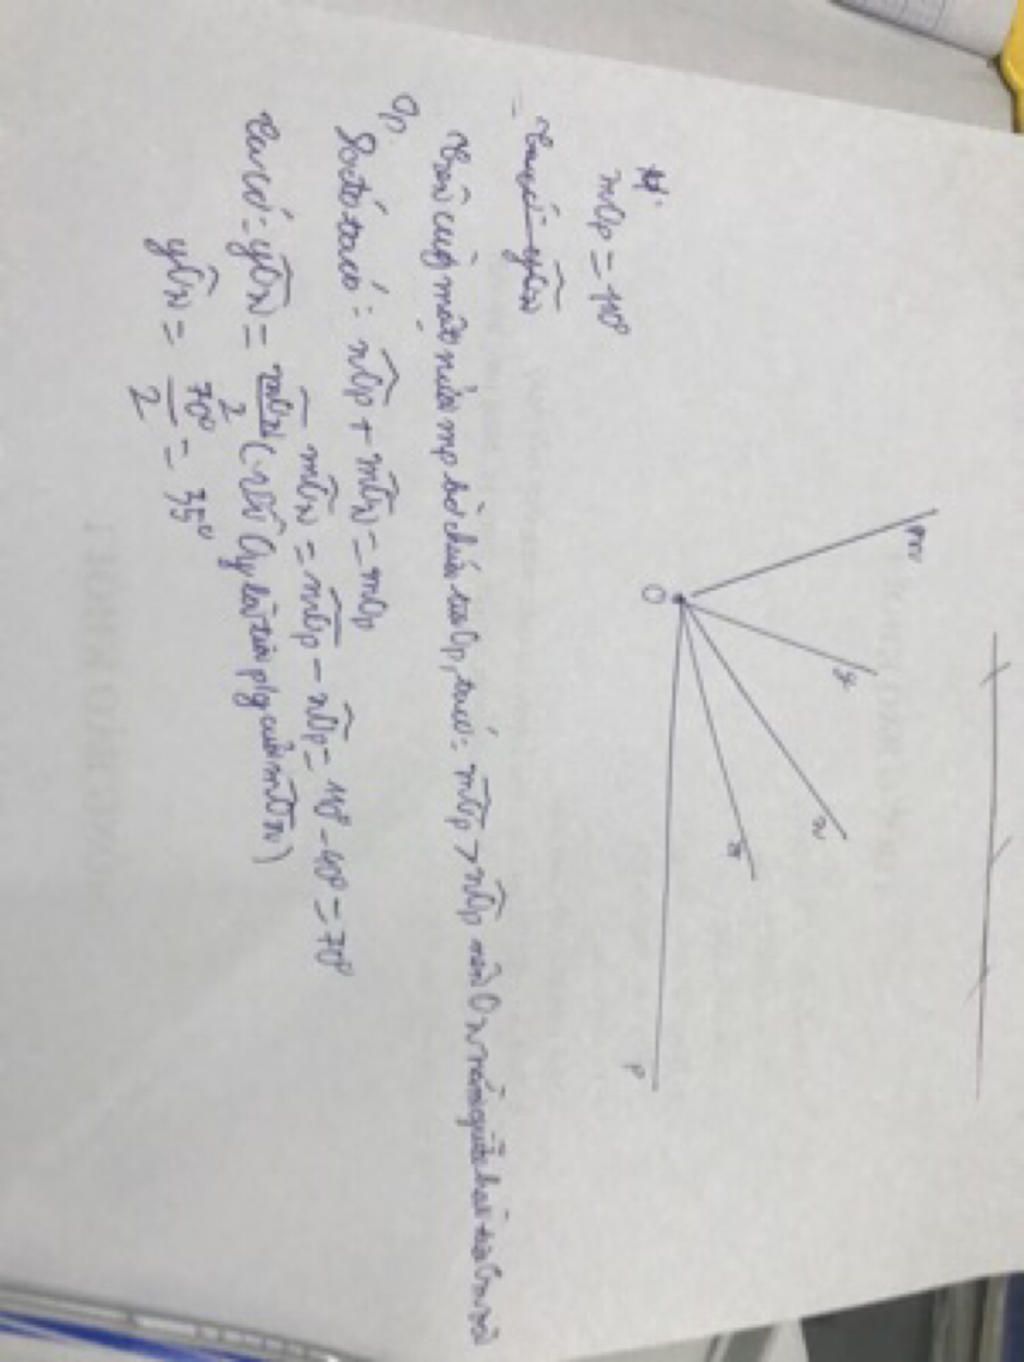 m
y
n
x
O
P
mOp = 110°
Ta có yOn
Trên cùng một nửa mp bờ chứa tia Op, ta có: mOp > nOp nên On nằm giữa hai tia Om và
Op
Do đó ta có: nOp + mOn = mOp
mOn = mOp - nOp = 110° - 40° = 70°
Ta có: yOn = mOn/2 (vì Oy là tia p/g của mOn)
yOn = 70°/2 = 35°